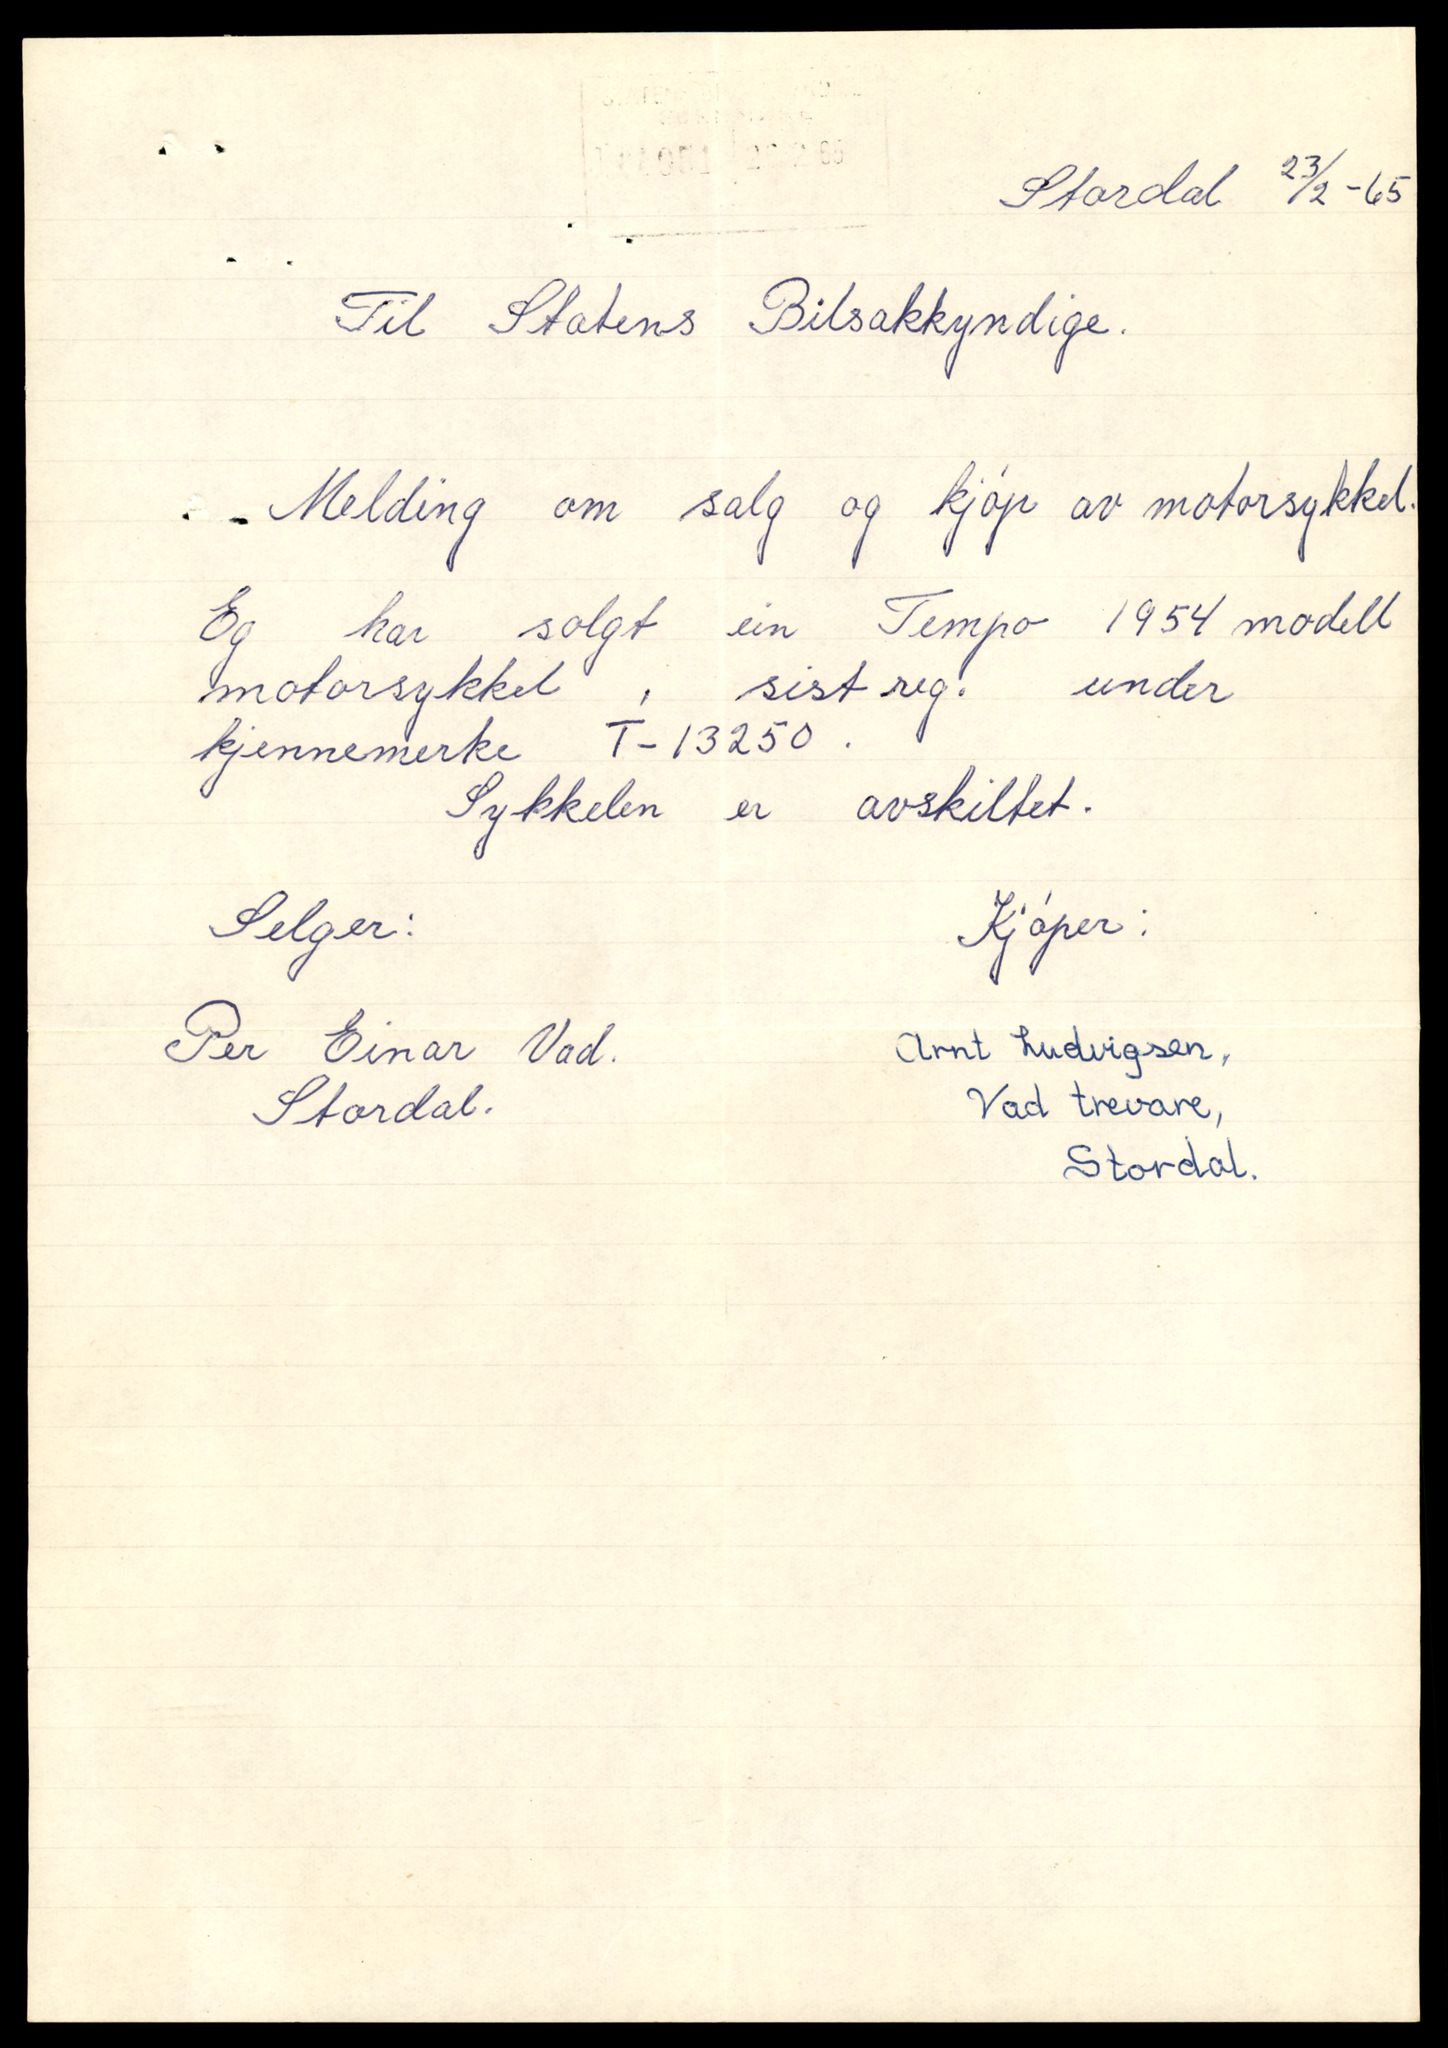 Stordal 23/2 -65
Til Statens Bilsakkyndige.
Melding om salg og kjóp av motorsykkel.
Eg har solgt ein Tempo 1954 modell
motorsykkel, sist reg. under
kjennemerke T-13250.
Sykkelen er avskiltet.
Selger:
Kjóper:
Per Einar Vad.
Stordal.
Arnt Ludvigsen,
Vad trevare,
Stordal.